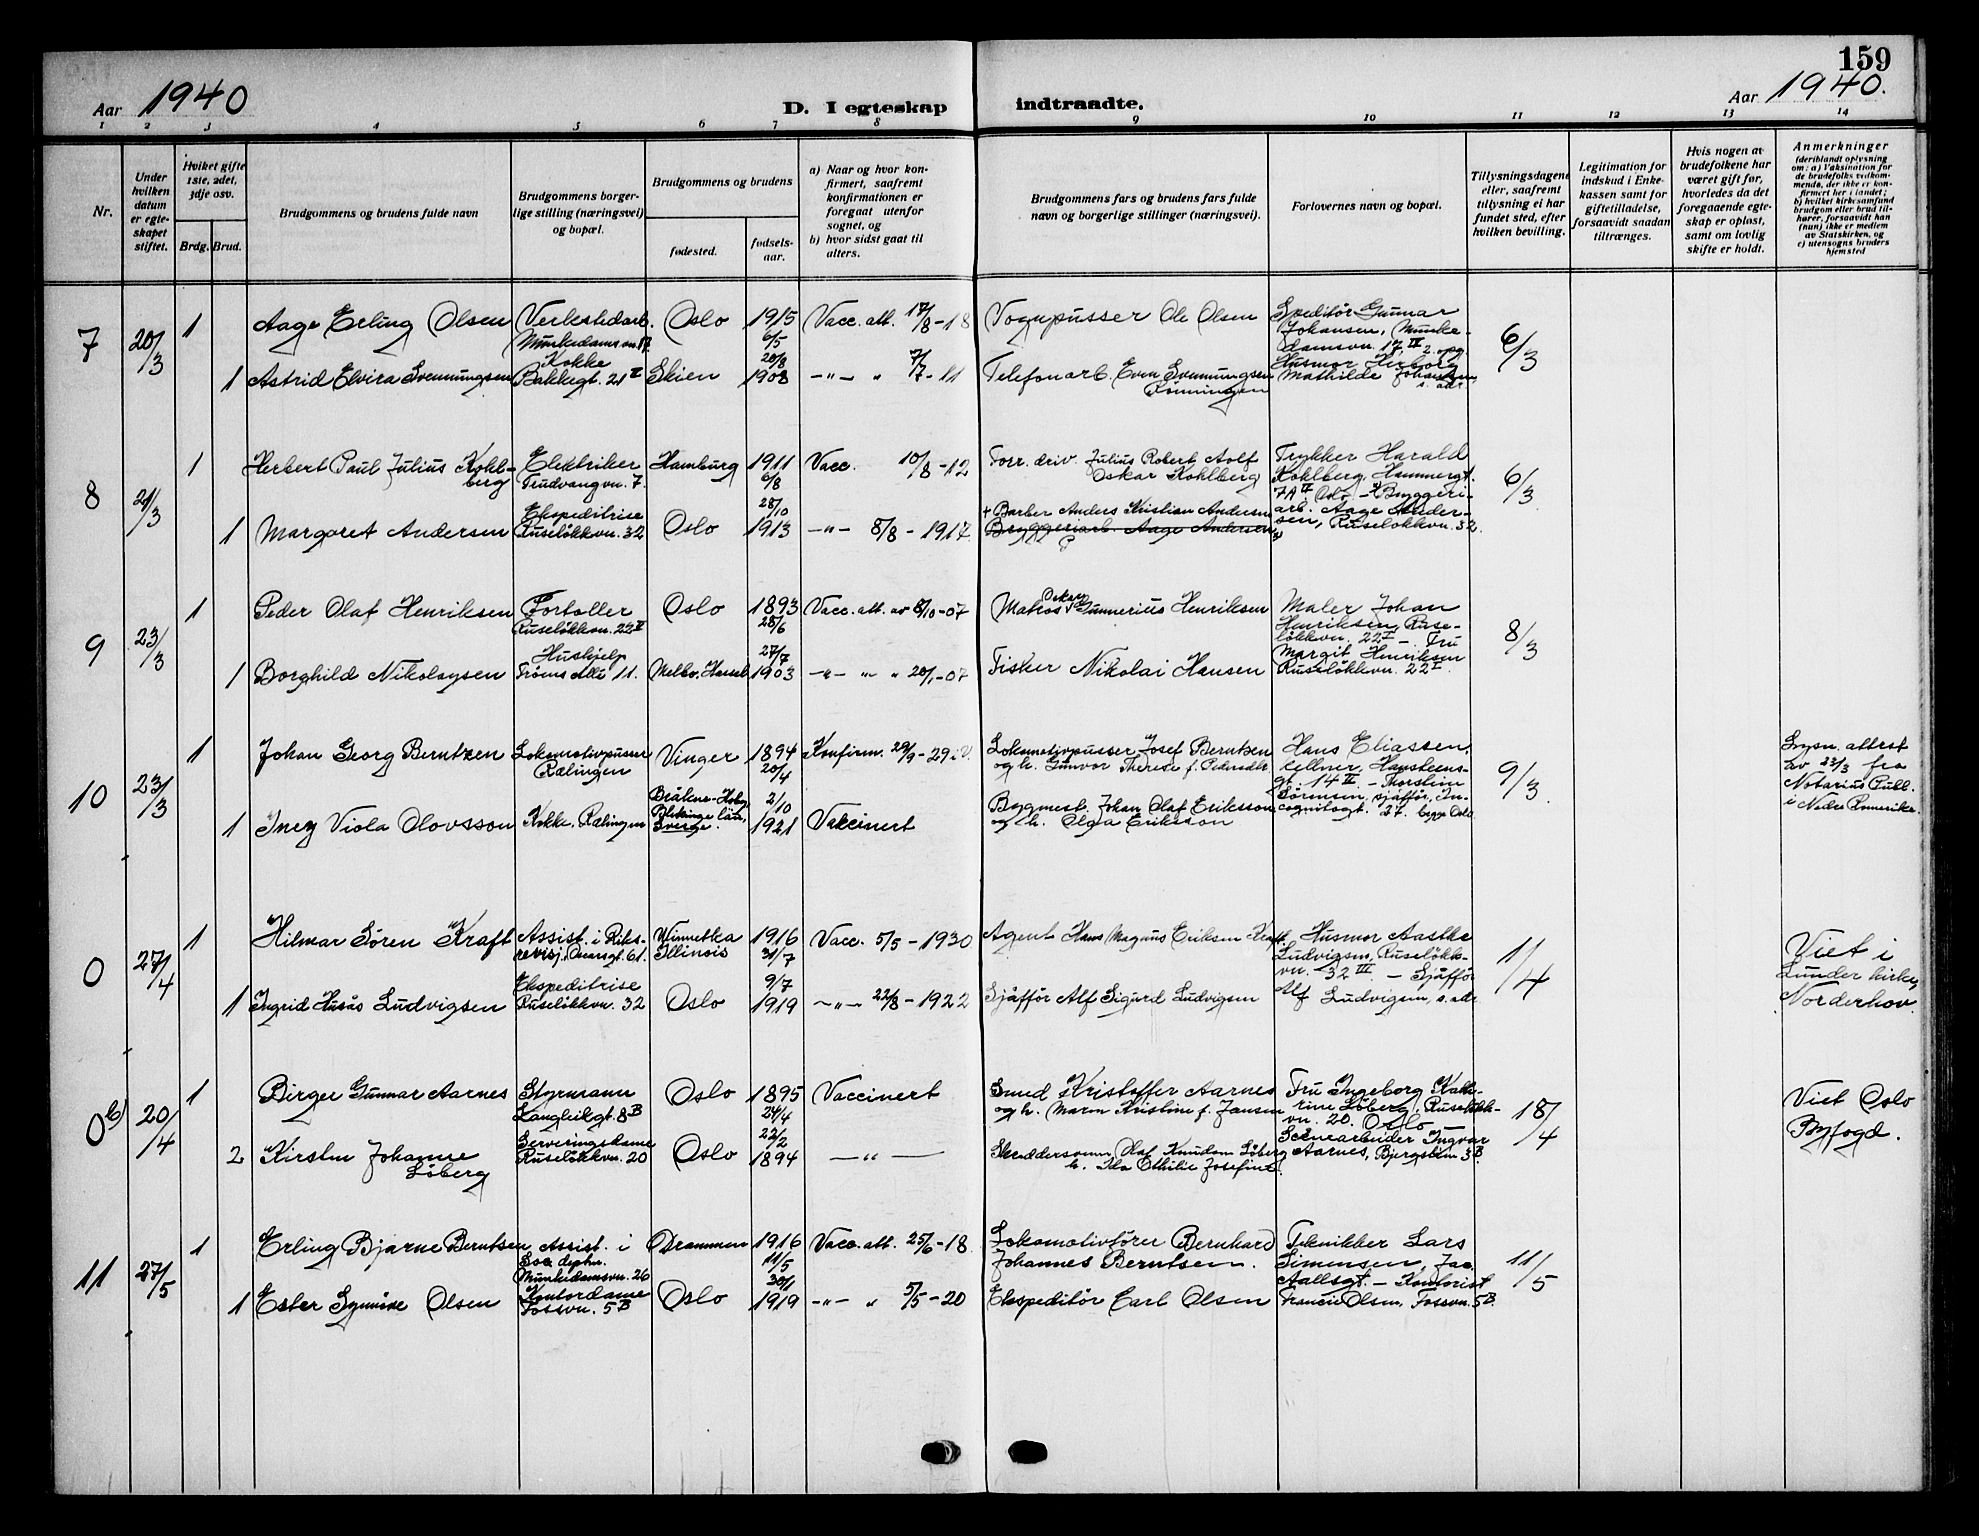 159
Aar 1940
D. I egteskap indtraadte.
Aar 1940.
1 2 3 4 5 6 7 8 9 10 11 12 13 14
Nr.
Under hvilken datum er egteskapet stiftet.
Hvilket gifte 1ste, 2det, 3dje osv.
Brdg. Brud.
Brudgommens og brudens fulde navn
Brudgommens borgerlige stilling (næringsvei) og bopæl.
Brudgommens og brudens
fødested.
fødselsaar.
a) Naar og hvor konfirmert, saafremt konfirmationen er foregaat utenfor sognet, og
b) hvor sidst gaat til alters.
Brudgommens fars og brudens fars fulde navn og borgerlige stillinger (næringsvei).
Forlovernes navn og bopæl.
Tillysningsdagene eller, saafremt tillysning ei har fundet sted, efter hvilken bevilling.
Legitimation for indskud i Enkekassen samt for giftetilladelse, forsaavidt saadan tiltrænges.
Hvis nogen av brudefolkene har været gift før, hvorledes da det foregaaende egteskap er opløst, samt om lovlig skifte er holdt.
Anmerkninger
(deriblandt oplysning om: a) Vaksination for de brudefolks vedkommende, der ikke er konfirmert her i landet; b) hvilket kirkesamfund brudgom eller brud tilhører, forsaavidt han (hun) ikke er medlem av Statskirken, og c) utensogns bruders hjemsted
7 20/3 1 Aage Erling Olsen Verkstedarb. Munkedamsvn. 17. Oslo 1915 6/5 Vacc. att. 17/8-18 Vognpusser Ole Olsen Speditør Gunnar Johansen, Munkedamsvn. 17 IV 2. opg. 6/3
1 Astrid Elvira Svennungsen Kokke Bakkegt. 21 II Skien 20/8 1908 -"- " 7/7-11 Telefonarb. Even Svennungsen Rønningen Husmor Herborg Mathilde Johansen, s. adr.
8 21/3 1 Herbert Paul Julius Kohlberg Elektriker Trudvangvn. 7. Hamburg 1911 6/8 Vacc. 10/8-12 Forr. driv. Julius Robert Adolf Oskar Kohlberg Trykker Harald Kohlberg, Hammergt. 7A II Oslo - Bryggeriarb. Aage Andersen, Ruseløkkvn. 32. 6/3
1 Margaret Andersen Ekspeditrise Ruseløkkvn. 32 Oslo 28/10 1913 -"- 8/8-1917. + Barber Anders Kristian Andersen
Bryggeriarb. Aage Andersen
9 23/3 1 Peder Olaf Henriksen Fortoller Ruseløkkvn. 22 II Oslo 1893 28/6 Vacc. att. av 8/10-07 Matros Oskar Gunnerius Henriksen Maler Johan Henriksen, Ruseløkkvn. 22 I - Fru Margit Henriksen Ruseløkkvn. 22 I. 8/3
1 Borghild Nikolaysen Hushjelp Frøens Allé 11. Melbo, Hadsel 27/7 1903 -"- " " 20/1-07 Fisker Nikolai Hansen
10 23/3 1 Johan Georg Berntzen Lokomotivpusser Rælingen Vinger 1894 20/4 Konfirm. 29/9-29 i V. Lokomotivpusser Josef Berntzen og h. Gunvor Therese f. Pedersdtr Hans Eliassen, kellner, Hansteensgt. 14 II - Thorstein Sørensen, sjåffør, Incognitogt. 27. begge Oslo 9/3.
Lysn. attest av 23/3 fra Notarius Publ. i Nedre Romerike.
1 Inez Viola Olovsson Kokke, Rælingen Bräkne-Hoby, Blekinge län, Sverige. 2/10 1921 Vaccinert Bygmest. Johan Olaf Eriksson og h. Olga Eriksson
0 27/4 1 Hilmar Sören Kraft Assist. i Riksrevisj. Oscarsgt. 61. Winnetka Illinois 1916 31/7 Vacc. 5/5-1930 Agent Hans Magnus Eriksen Kraft Husmor Aasthe Ludvigsen, Ruseløkkvn. 32 III - Sjåffør Alf Ludvigsen, s. adr. 1/4 Viet i Lunder kirke, Norderhov.
1 Ingrid Husås Ludvigsen Ekspeditrise Ruseløkkvn. 32 Oslo 9/7 1919 -"- 22/8-1922 Sjåffør Alf Sigurd Ludvigsen
0 b) 20/4 1 Birger Gunnar Aarnes Styrmann Langleikgt. 8 B Oslo 1895 24/4 Vaccinert Smed Kristoffer Aarnes og h. Maren Kristine f. Jansen Fru Ingeborg Kathrine Løberg, Ruseløkkvn. 20. Oslo - Scenearbeider Ingvar Aarnes, Bjergstien 3 B. 18/4 Viet Oslo Byfogd.
2 Kirsten Johanne Løberg Serveringsdame Ruseløkkvn. 20 Oslo 22/2 1894 -"- Skreddersvenn Olaf Knudsen Løberg h. Ida Othilie Josefine.
11 27/5 1 Erling Bjarne Berntsen Assist. i Sos. dephn. Munkedamsvn. 26 Drammen 1916 11/5 Vacc. att. 25/6-18. Lokomotivfører Bernhard Johannes Berntsen. Tekniker Lars Simensen, Jac. Aallsgt. - Kontorist Francis Olsen, Fossvn. 5 B. 11/5
1 Ester Synnöve Olsen Kontordame Fossvn. 5 B Oslo 30/1 1919 -"- " 5/5-20 Ekspeditör Carl Olsen